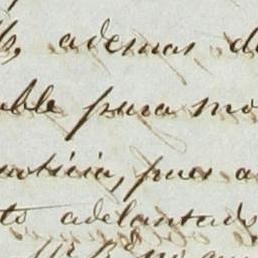 ademas d
ble para mo
noticia, pues a
to adelantado